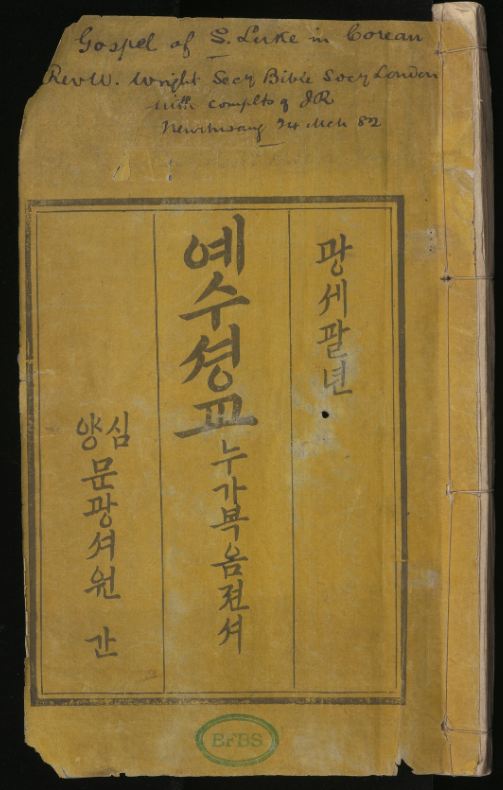 Gospel of S. Luke in Corean
Rev W. Wright Secy Bible Socy London
with complts of JR
24 Mch 82
광셰팔년
예수셩교누가복음젼셔
심양
문광셔원 간
BFBS